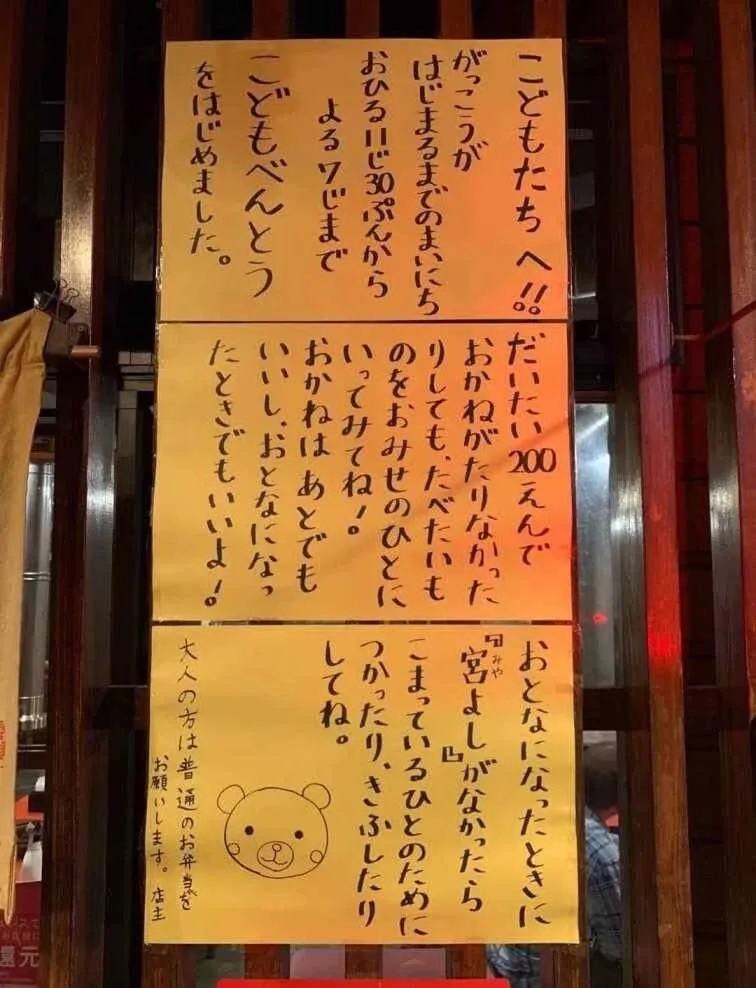 こどもたちへ!!
がっこうが
はじまるまでのまいにち
おひる11じ30ぷんから
よる7じまで
こどもべんとう
をはじめました。
だいたい200えんで
おかねがたりなかった
りしても、たべたいも
のをおみせのひとに
いってみてね!
おかねは あとでも
いいし、おとなになっ
たときでもいいよ!
おとなになったときに
『宮よし』がなかったら
みや
こまっているひとのために
つかったり、きふしたり
してね。
大人の方は普通のお弁当を
お願いします。店主
還元